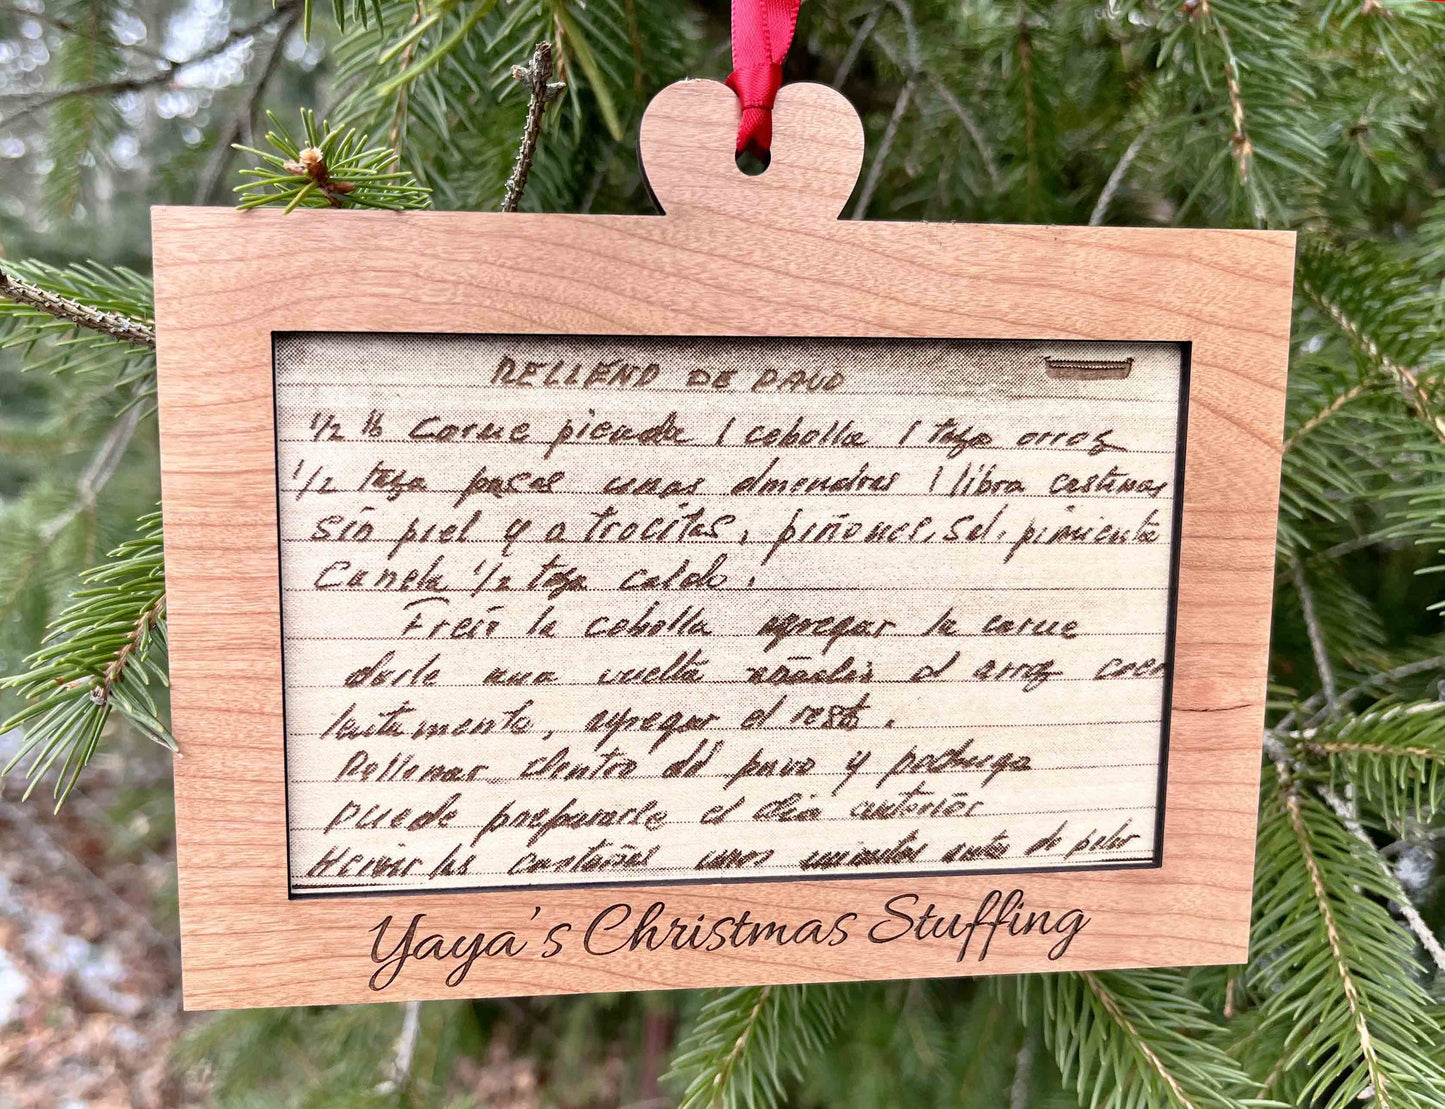 RELLENO DE PAVO
1/2 lb carne picada 1 cebolla 1 taza arroz
1/2 taza pasas unas almendras 1 libra castinas
sin piel y a trocitos, piñones, sal, pimienta
Canela 1/2 taza caldo.
Freir la cebolla agregar la carne
darle una vuelta añadir el arroz cocer
lentamente, agregar el resto.
Rellenar dentro del pavo y pechuga
puede prepararle el dia anterior
Hervir las castañas unos minutos antes de pelar
Yaya's Christmas Stuffing